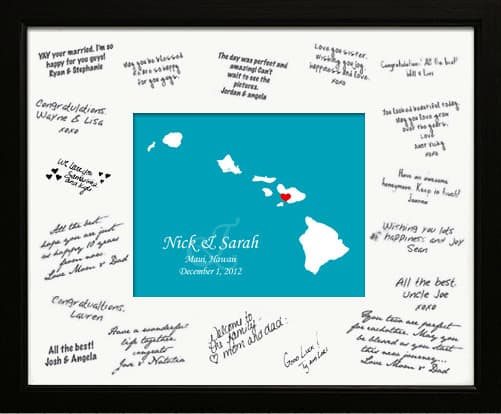 YAY your married. I'm so
happy for you guys!
Ryan & Stephanie
May you be blessed
so happy
for you guys.
The day was perfect and
amazing! Can't
wait to see the
pictures.
Jordan & angela
Love you sister.
Wishing you
happiness and love.
xoxo
Congratulations! All the best!
Will &
Congratulations.
Wayne & Lisa
xoxo
You looked beautiful today.
May you love grow
over the years.
Love
Aunt Vicky
xoxo
We love you
Have an awesome
honeymoon. Keep in touch!
Joanna
Nick & Sarah
Maui, Hawaii
December 1, 2012
All the best
hope you are just
as happy 10 years
from now.
Love Mom & Dad
Wishing you lots
of happiness and Joy
Sean
All the best.
Uncle Joe
xoxo
Congratualtions.
Lauren
All the best!
Josh & Angela
Have a wonderful
life together,
congrats
Jon & Natasha
Welcome to
the family.
mom and dad.
Good Luck!
You two are perfect
for eachother. May you
be blessed as you start
this new journey...
Love Mom & Dad